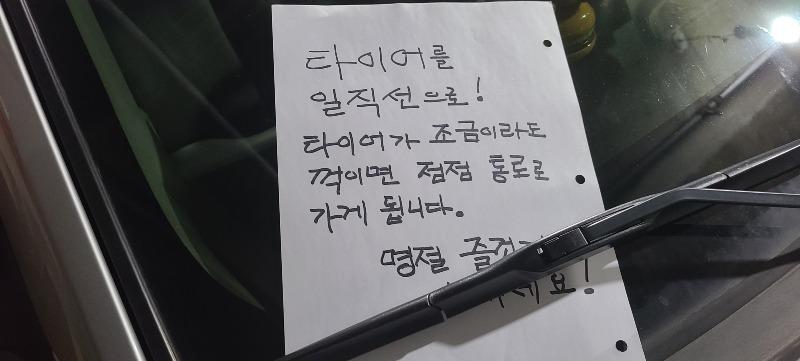 타이어를
일직선으로!
타이어가 조금이라도
꺽이면 점점 통로로
가게 됩니다.
명절